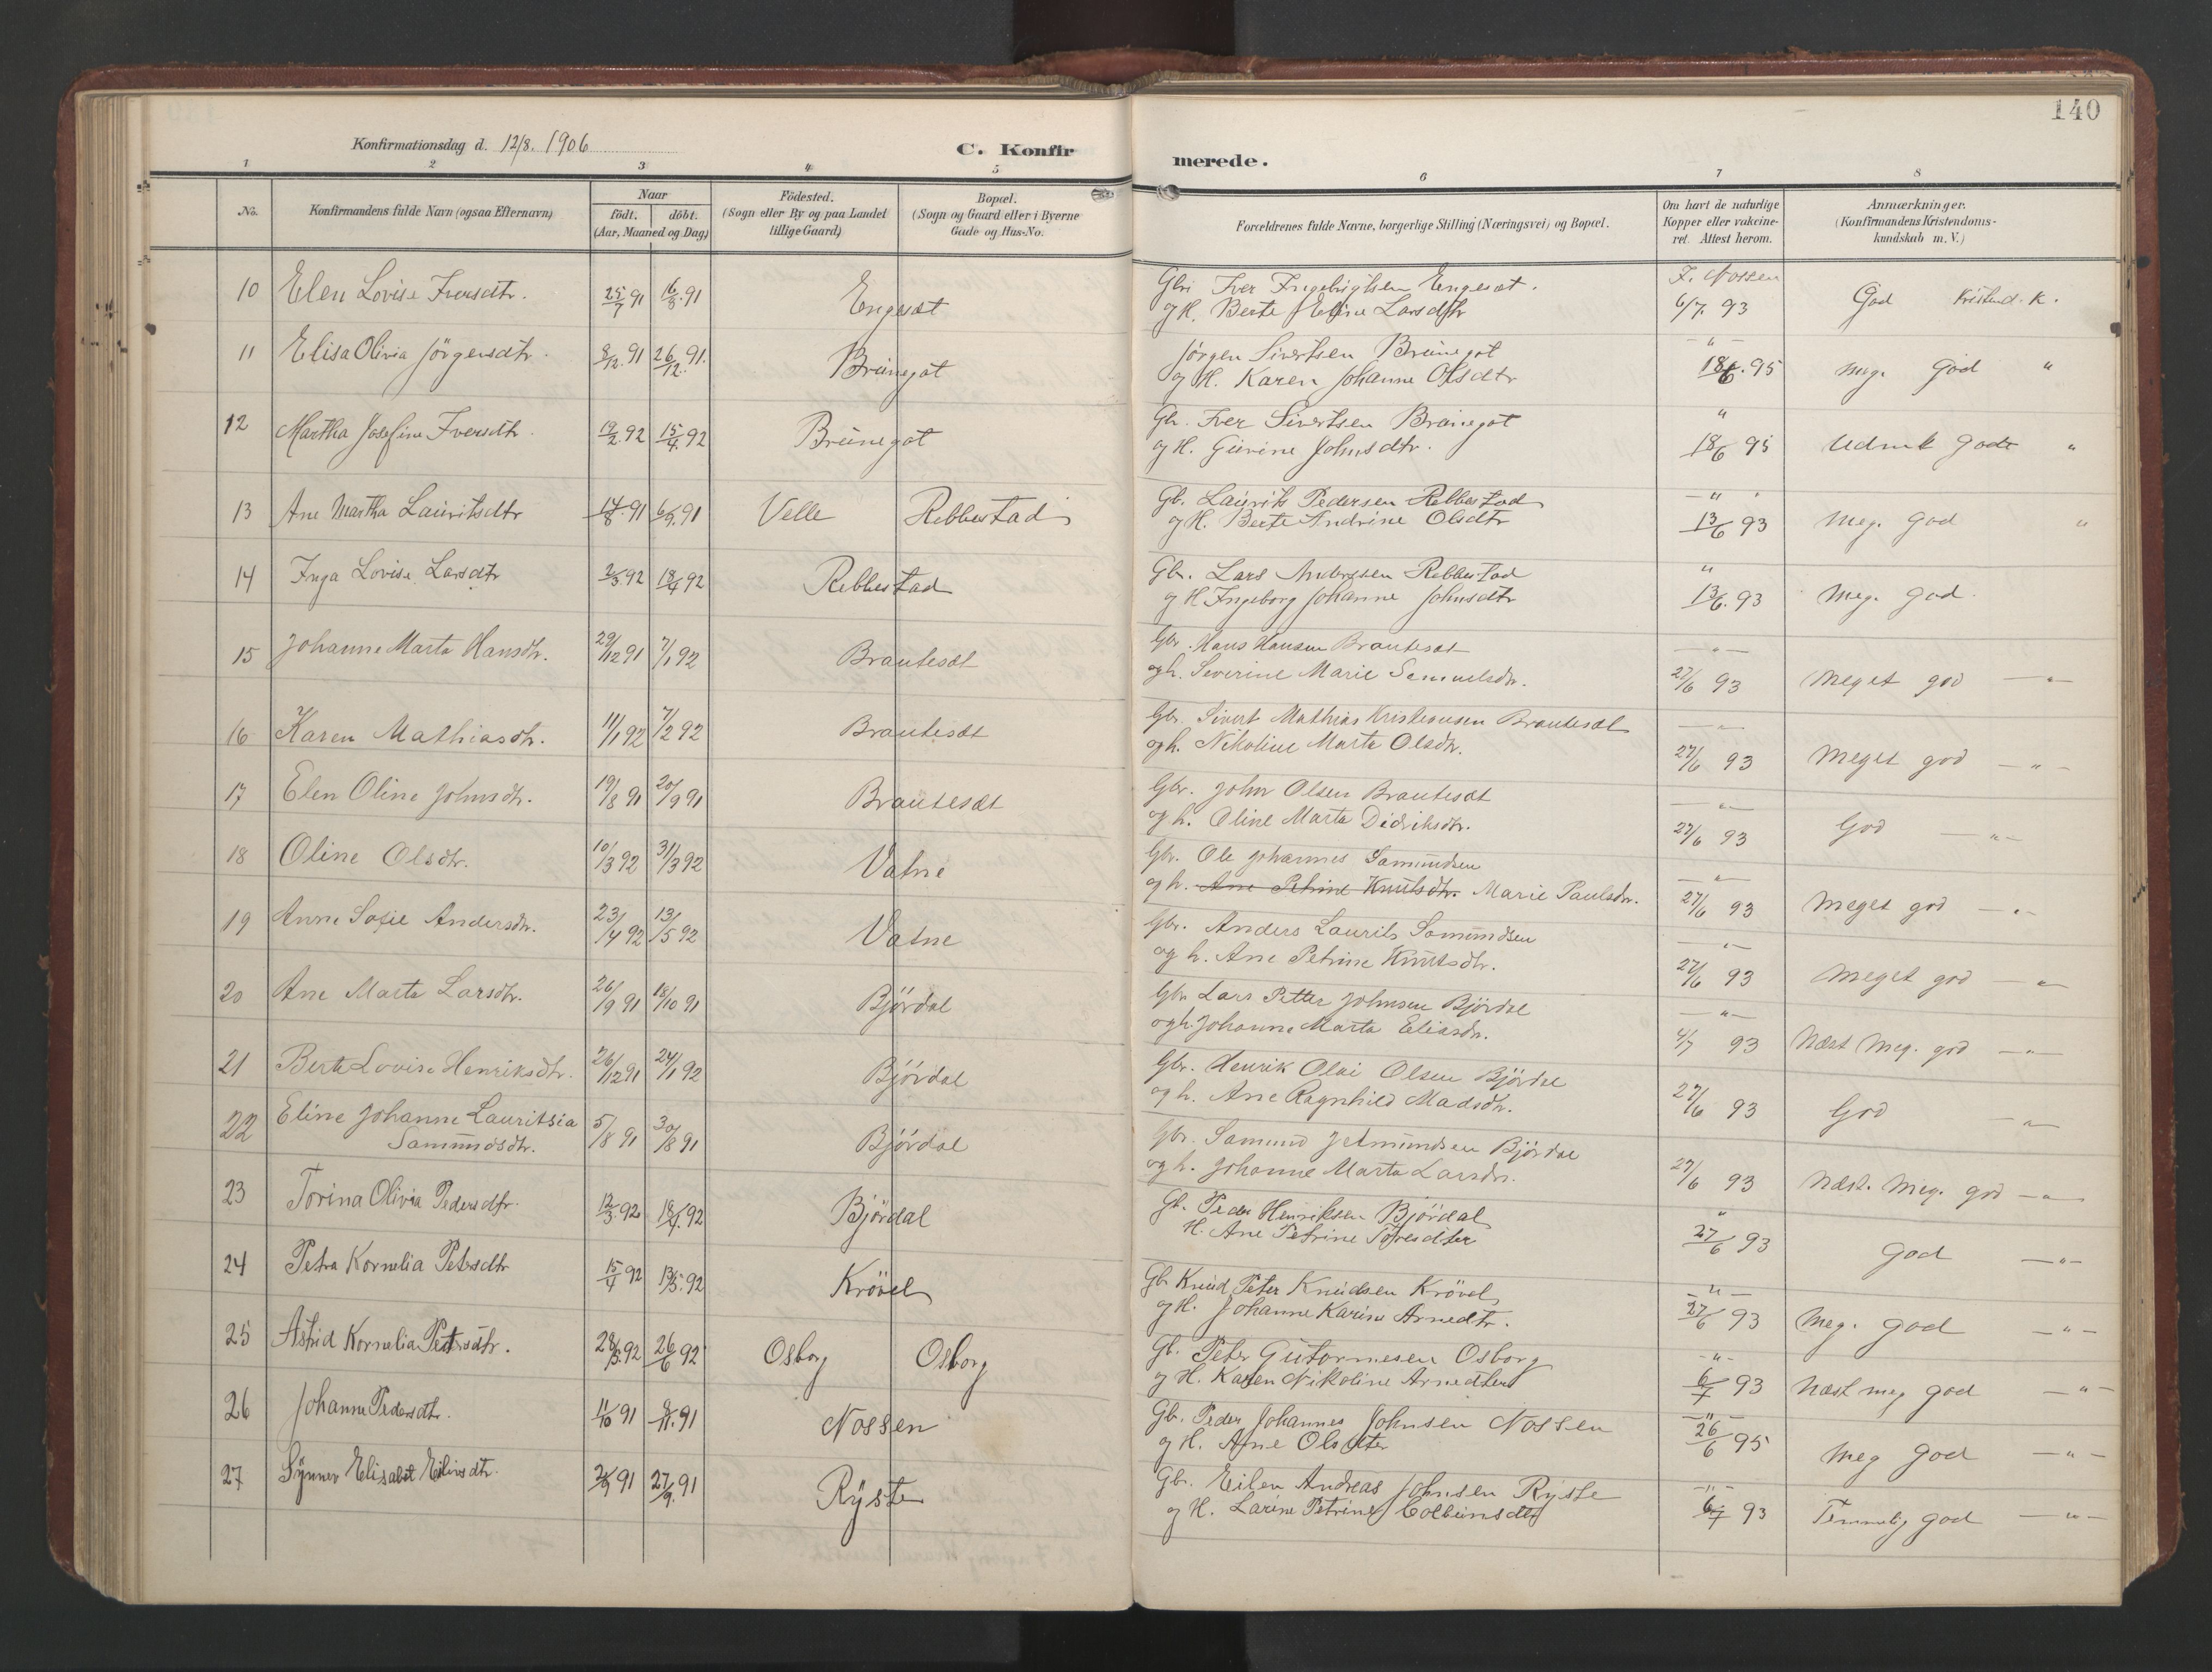 140
Konfirmationsdag d. 12/8. 1906
C. Konfirmerede.
1 2 3 4 5 6 7 8
No.
Konfirmandens fulde Navn (ogsaa Efternavn)
Naar
födt. döbt.
(Aar, Maaned og Dag)
Födested.
(Sogn eller By og paa Landet
tillige Gaard)
Bopæl.
(Sogn og Gaard eller i Byerne
Gade- og Hus-No.
Forældrenes fulde Navne, borgerlige Stilling (Næringsvei) og Bopæl.
Om havt de naturlige
Kopper eller vakcine-
ret. Attest herom.
Anmærkninger.
(Konfirmandens Kristendoms-
kundskab m. V.)
10 Elen Lovise Iversdtr. 25/7 91 16/8 91 Engesæt
Gbr. Iver Ingebrigtsen Engesæt.
og H. Berte Eline Larsdtr
F. Nossen
6/7. 93 God Kristend. K.
11 Elisa Olivia Jörgensdtr. 8/12. 91 26/12. 91. Brünegot
Jörgen Sivertsen Brünegot
og H. Karen Johanne Olsdtr
" 18/6. 95 meg. God "
12 Martha Josefine Iversdtr. 19/2. 92 15/4. 92 Brünegot
Gb. Iver Sivertsen Brünegot
og H. Gürine Johnsdtr.
" 18/6 95 Udmk Godt "
13 Ane Martha Lauritsdtr 14/8. 91 6/9. 91 Velle Rebbestad
Gb. Laurits Pedersen Rebbestad
og H. Berte Andrine Olsdtr
" 13/6 93 Meg. God "
14 Inga Lovise Larsdtr 2/3. 92 18/4 92 Rebbestad
Gb. Lars Andersen Rebbestad
og H Ingeborg Johanne Johnsdtr
" 13/6. 93 Meg. God.
15 Johanne Marta Hansdtr. 29/12 91 7/1 92 Brautesæt
Gbr. Hans Hansen Brautesæt
og h. Severine Marie Samuelsdtr.
— " — 27/6 93 Meget god — " —
16 Karen Mathiasdtr. 11/1 92 7/2 92 Brautesæt
Gbr. Sivert Mathias Kristensen Brautesæt
og h. Nikoline Marta Olsdtr.
— " — 27/6 93 Meget god — " —
17 Elen Oline Johnsdtr. 19/8 91 20/9 91 Brautesæt
Gbr. John Olsen Brautesæt
og h. Oline Marta Didriksdtr.
— " — 27/6 93 God — " —
18 Oline Olsdtr. 10/3 92 31/3 92 Vatne
Gbr. Ole Johannes Samundsen
og h. Ane Petrine Knutsdtr. Marie Paulsdtr.
— " — 27/6 93 Meget god — " —
19 Anne Sofie Andersdtr. 23/4 92 13/5 92 Vatne
Gbr. Anders Laurits Samundsen
og h. Ane Petrine Knutsdtr.
— " — 27/6 93 Meget god — " —
20 Ane Marta Larsdtr. 26/9 91 18/10 91 Björdal
Gbr. Lars Petter Johnsen Björdal
og h. Johanne Marta Eliasdtr.
— " — 4/7 93 Næst meg. god — " —
21 Berte Lovise Henriksdtr. 26/12 91 24/1 92 Björdal
Gbr. Henrik Olai Olsen Björdal
og h. Ane Ragnhild Madsdtr.
27/6 93 God — " —
22 Eline Johanne Lauritsia
Samundsdtr. 5/8 91 30/8 91 Björdal
Gbr. Samund Jetmundsen Björdal
og h. Johanne Marta Larsdtr.
27/6 93 Næst. meg. god — " —
23 Torina Olivia Pedersdtr. 12/3. 92 18/4. 92 Björdal
Gb. Peder Henriksen Björdal
H. Ane Petrine Toresdtter
" 27/6 93 God — " —
24 Petra Kornelia Petersdtr 15/4 92 13/5. 92 Krövel
Gb. Knud Peter Knudsen Krövel
og H. Johanne Karine Arnedtr.
— " — 27/6 93 Meg. God — " —
25 Astrid Kornelia Petersdtr. 28/5. 92 26/6 92 Osborg Osborg
Gb. Peter Gutormesen Osborg
og H. Karen Nikoline Arnedtter
— " — 6/7 93 Næst meg God — " —
26 Johanne Pedersdtr. 11/10 91 8/11. 91 Nossen
Gb. Peder Johannes Johnsen Nossen
og H. Ane Olsdtter
— " — 26/6 95 Meg God — " —
27 Synnev Elisabet Eilivsdtr. 2/9 91 27/9. 91 Ryste
Gbr. Eilev Andreas Johnsen Ryste
og H. Larine Petrine Colbeinsdtr
— " — 6/7 93 Temmelig God — " —